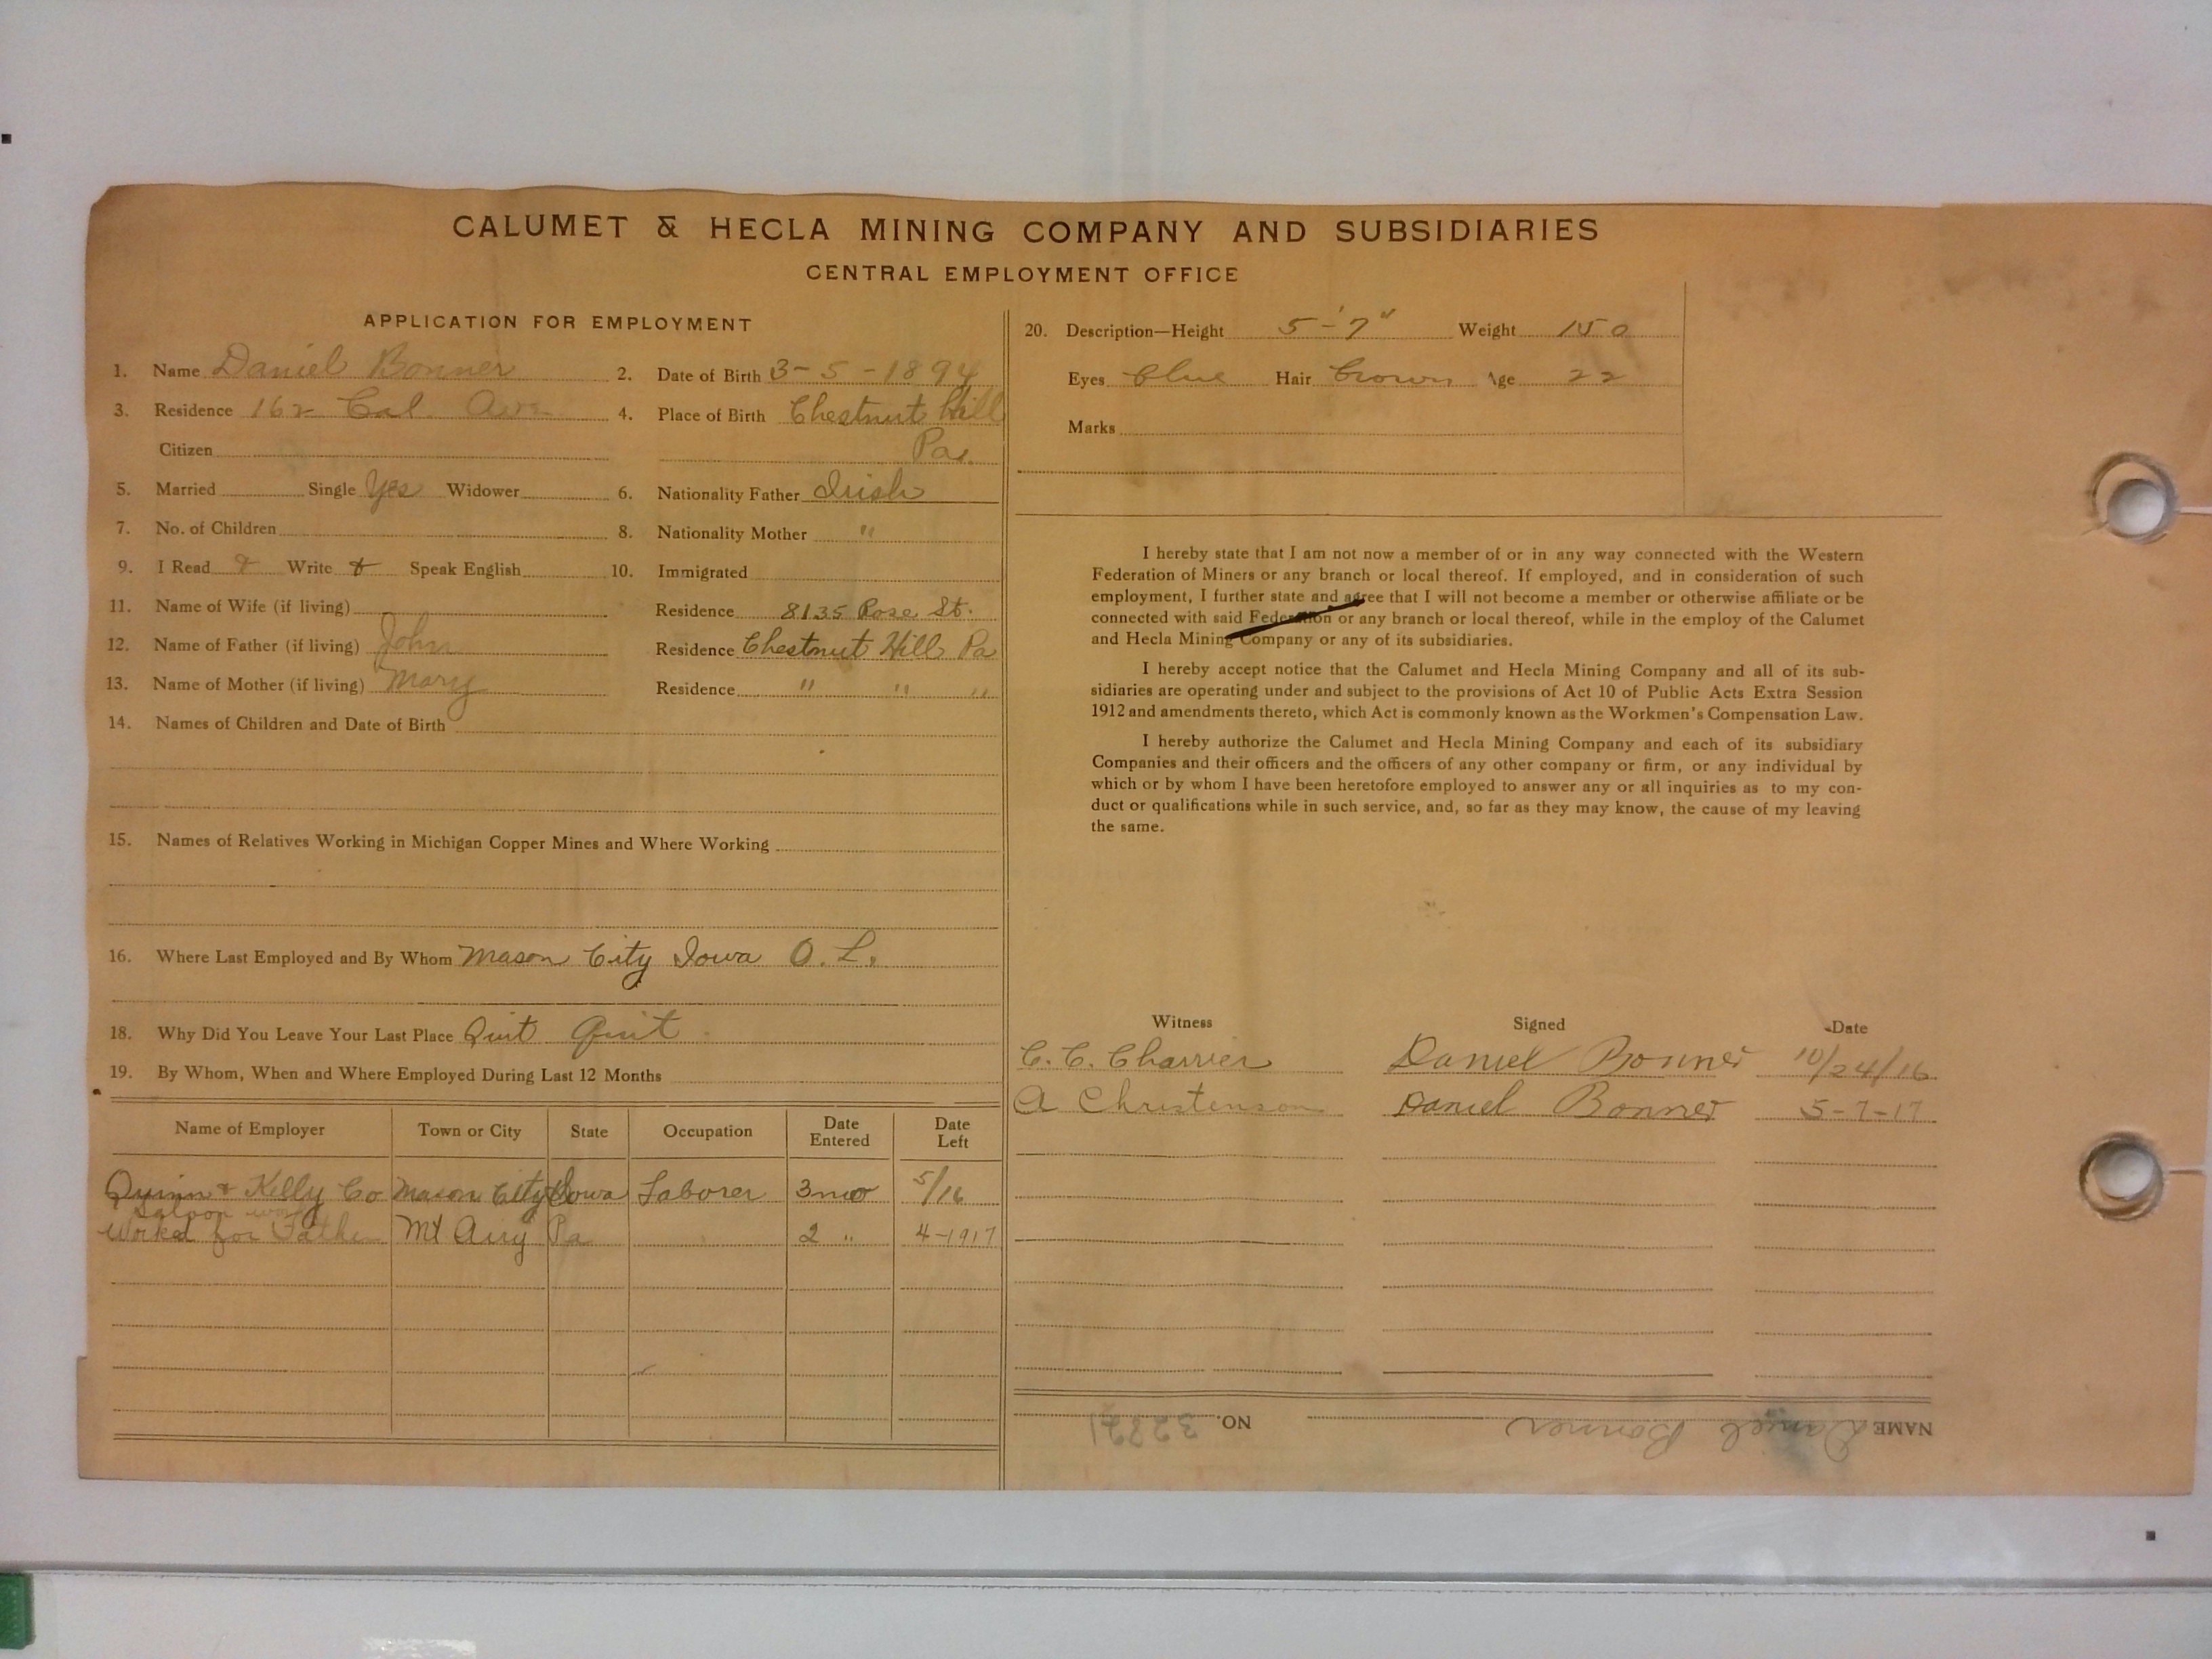 CALUMET & HECLA MINING COMPANY AND SUBSIDIARIES
CENTRAL EMPLOYMENT OFFICE
APPLICATION FOR EMPLOYMENT
1. Name Daniel Bonner 2. Date of Birth 3-5-1894
3. Residence 162 Cal. Ave 4. Place of Birth Chestnut Hill
Citizen Pa.
5. Married Single Yes Widower 6. Nationality Father Irish
7. No. of Children 8. Nationality Mother "
9. I Read & Write & Speak English 10. Immigrated
11. Name of Wife (if living) Residence 8135 Rose St.
12. Name of Father (if living) John Residence Chestnut Hill Pa
13. Name of Mother (if living) Mary Residence " " "
14. Names of Children and Date of Birth
15. Names of Relatives Working in Michigan Copper Mines and Where Working
16. Where Last Employed and By Whom Mason City Iowa O. L.
18. Why Did You Leave Your Last Place Quit Quit
19. By Whom, When and Where Employed During Last 12 Months
Name of Employer Town or City State Occupation Date Entered Date Left
Quinn & Kelly Co Mason City Iowa Laborer 3 mo 5/16
Saloon work
Worked for Father Mt Airy Pa 2 " 4-1917
20. Description—Height 5'-7" Weight 150
Eyes blue Hair brown Age 22
Marks
I hereby state that I am not now a member of or in any way connected with the Western
Federation of Miners or any branch or local thereof. If employed, and in consideration of such
employment, I further state and agree that I will not become a member or otherwise affiliate or be
connected with said Federation or any branch or local thereof, while in the employ of the Calumet
and Hecla Mining Company or any of its subsidiaries.
I hereby accept notice that the Calumet and Hecla Mining Company and all of its sub-
sidiaries are operating under and subject to the provisions of Act 10 of Public Acts Extra Session
1912 and amendments thereto, which Act is commonly known as the Workmen's Compensation Law.
I hereby authorize the Calumet and Hecla Mining Company and each of its subsidiary
Companies and their officers and the officers of any other company or firm, or any individual by
which or by whom I have been heretofore employed to answer any or all inquiries as to my con-
duct or qualifications while in such service, and, so far as they may know, the cause of my leaving
the same.
Witness Signed Date
C. C. Charrier Daniel Bonner 10/24/16
A Christenson Daniel Bonner 5-7-17
NAME Daniel Bonner NO.